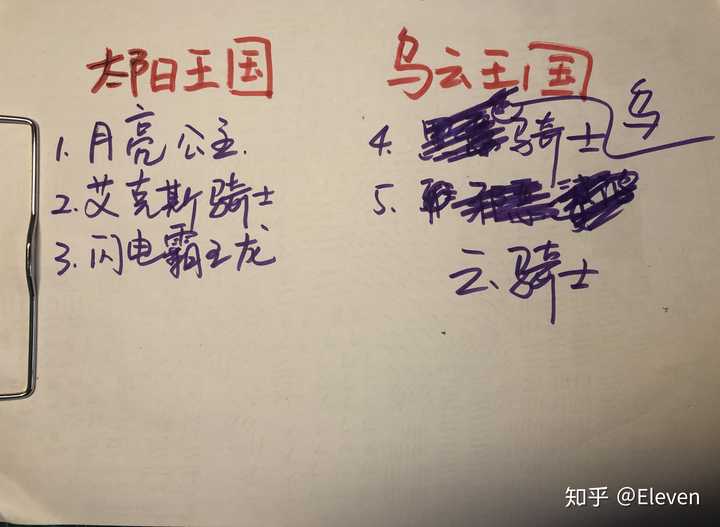 太阳王国
1. 月亮公主.
2. 艾克斯骑士
3. 闪电霸王龙
乌云王国
4. 乌骑士
5.
云骑士
知乎 @Eleven